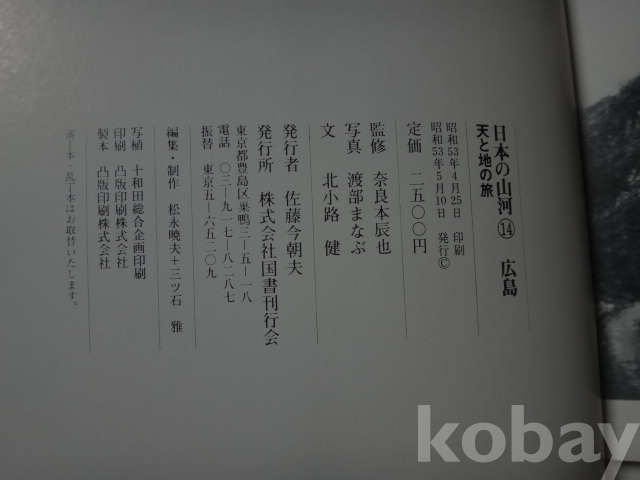 日本の山河⑭ 広島
天と地の旅
昭和53年4月25日 印刷
昭和53年5月10日 発行©
定価 二五〇〇円
監修 奈良本辰也
写真 渡部まなぶ
文 北小路 健
発行者 佐藤今朝夫
発行所 株式会社国書刊行会
東京都豊島区巣鴨三-五-一八
電話 〇三-九一七-八二八七
振替 東京五-六五二〇九
編集・制作 松永暁夫+三ツ石 雅
写植 十和田総合企画印刷
印刷 凸版印刷株式会社
製本 凸版印刷株式会社
落丁本・乱丁本はお取替いたします。
kobay